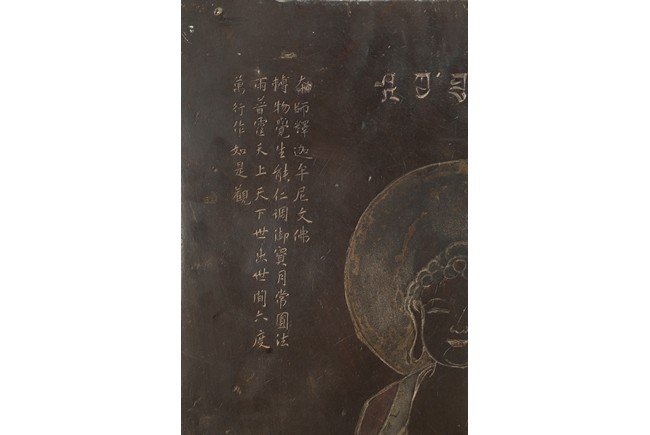 本師釋迦牟尼文佛
轉物覺生能仁調御寶月常圓法
雨普霑天上天下世出世間六度
萬行作如是觀